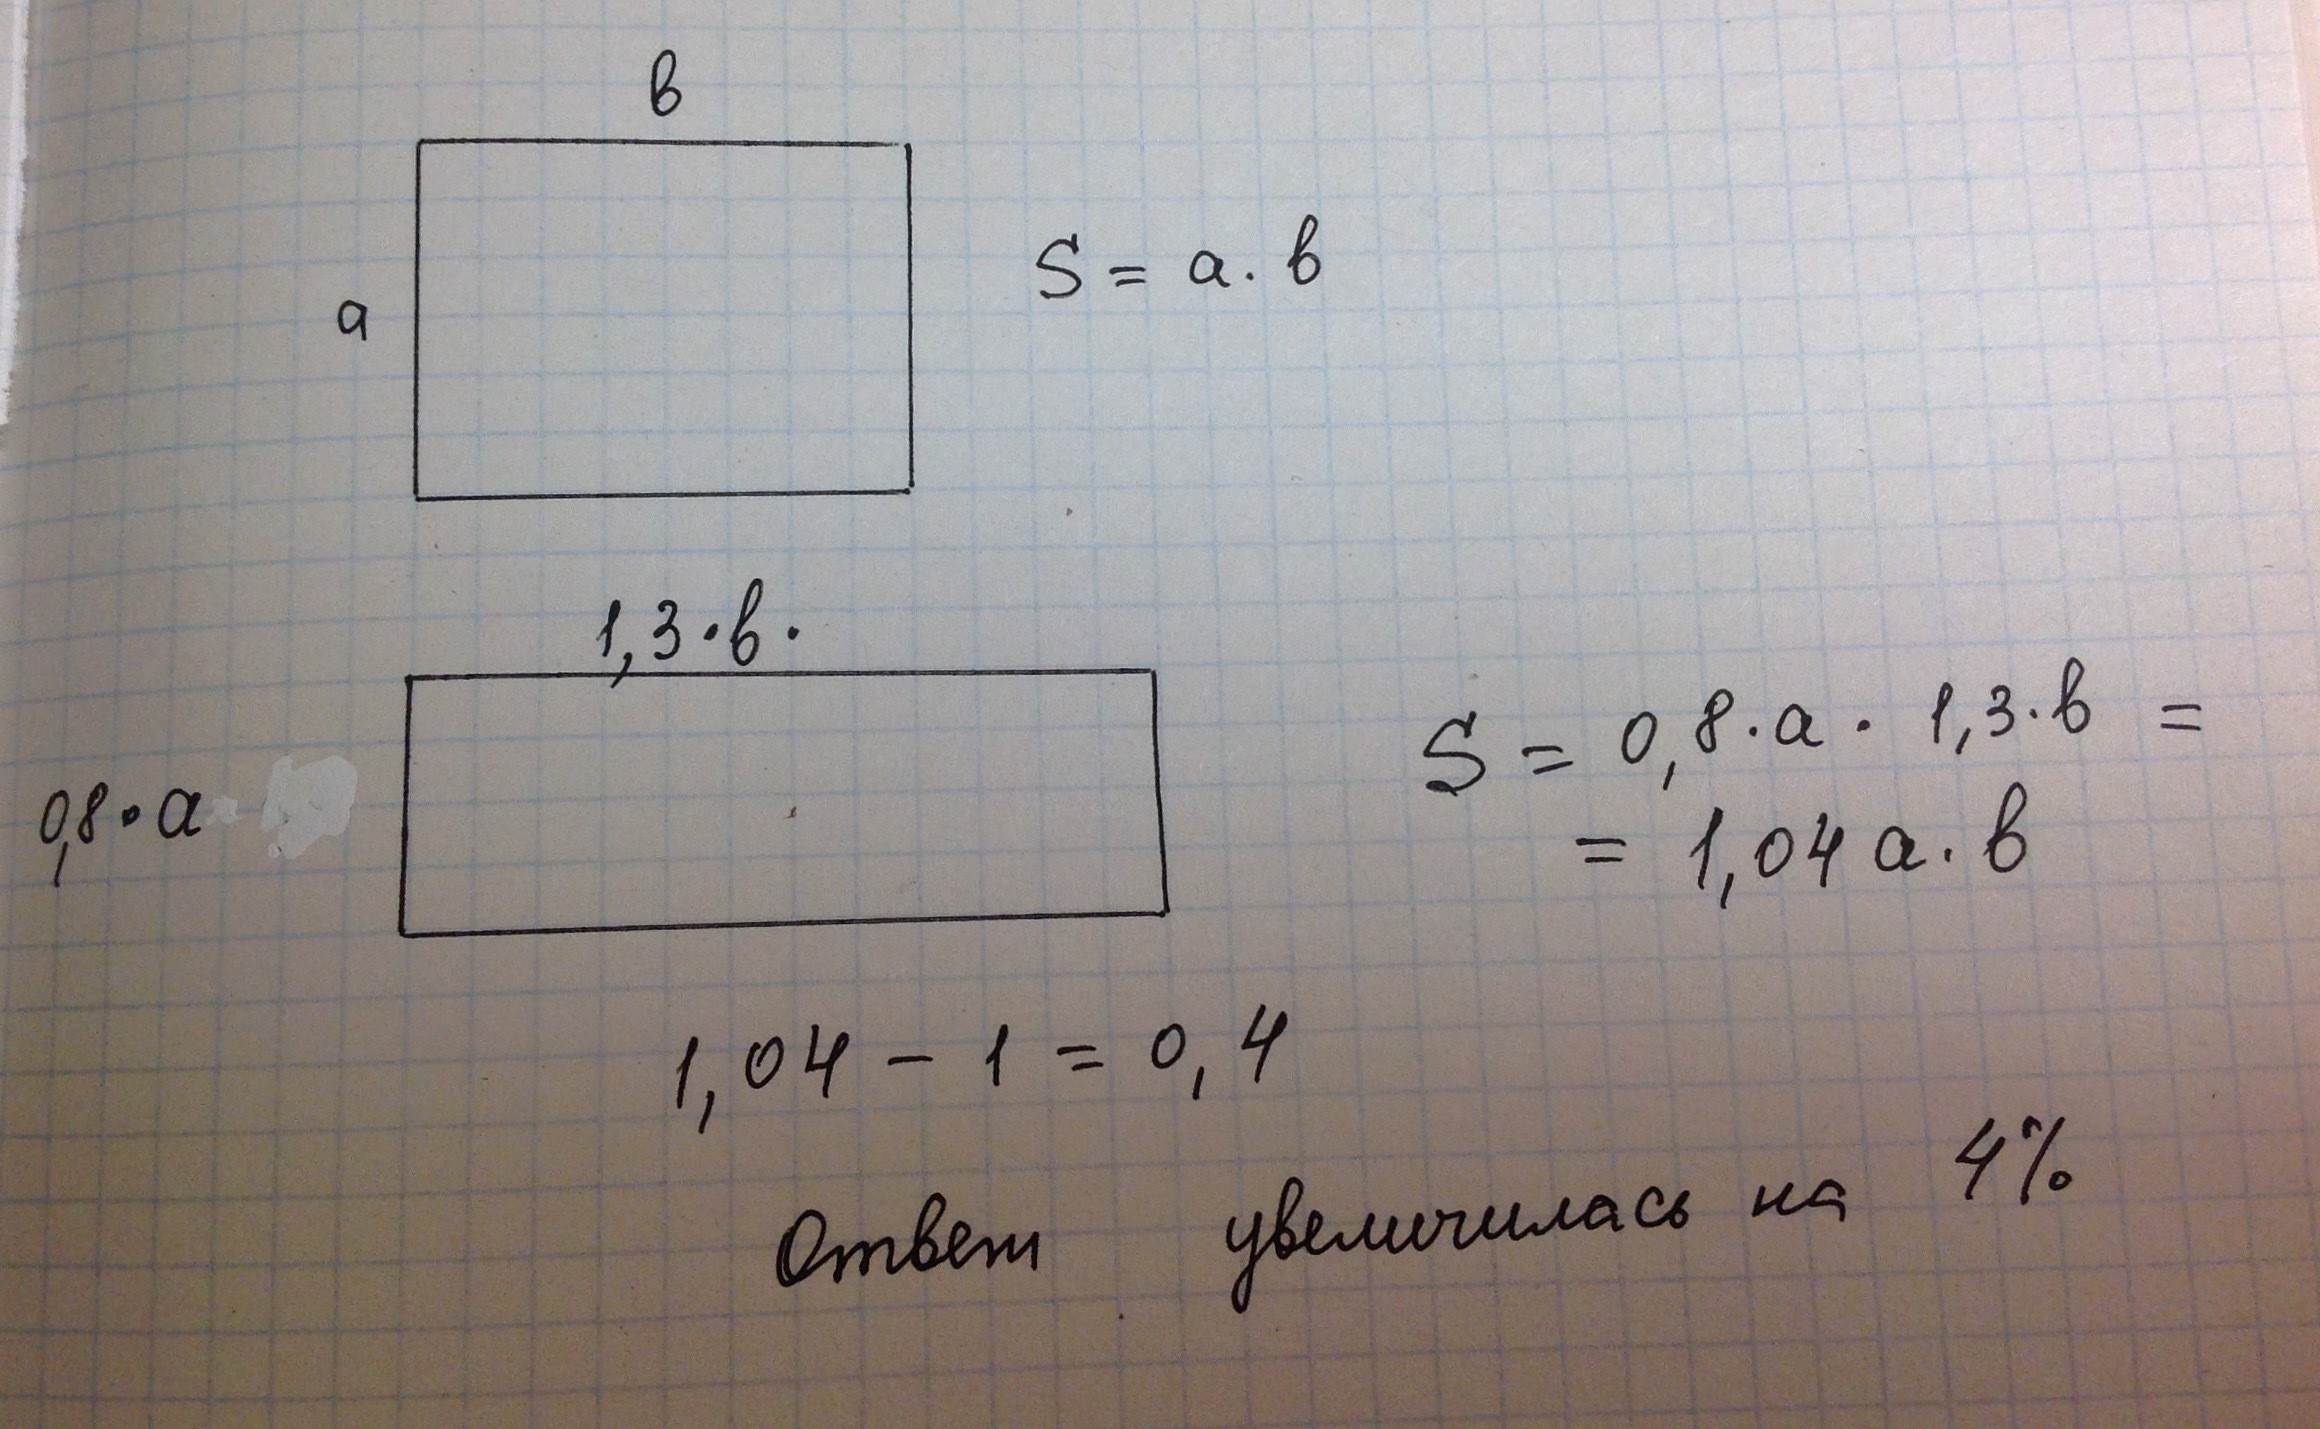 в
а
S = a · в
1,3 · в ·
0,8 · a
S = 0,8 · a · 1,3 · в =
= 1,04 a · в
1,04 – 1 = 0,4
Ответ увеличилась на 4%